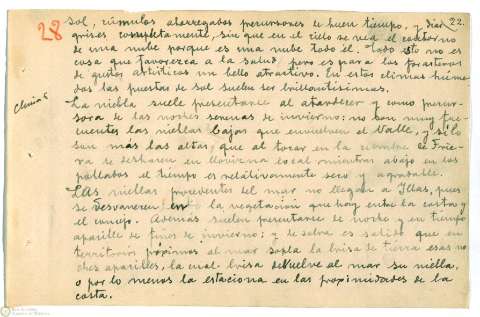 28
22.
sol, cúmulos aborregados precursores de buen tiempo, y días
grises completamente, sin que en el cielo se vea el contorno
de una nube porque es una nube todo él. Todo esto no es
cosa que favorezca a la salud, pero es para los forasteros
de gustos artísticos un bello atractivo. En estos climas húme-
dos las puestas de sol suelen ser brillantísimas.
Clima 6
La niebla suele presentarse al atardecer y como precur-
sora de las noches serenas de invierno: no son muy fre-
cuentes las nieblas bajas que envuelven el Valle, y sólo
son más las altas, que al tocar en la cumbre de
se deshacen en llovizna local mientras abajo en los
poblados el tiempo es relativamente seco y agradable.
Las nieblas procedentes del mar no llegan a Illas, pues
se desvanecen en la vegetación que hay entre la costa y
el concejo. Además suelen presentarse de noche y en tiempo
apacible de fines de invierno; y de sobra es sabido que en
territorios próximos al mar sopla la brisa de tierra esas no-
ches apacibles, la cual brisa devuelve al mar su niebla,
o por lo menos la estaciona en las proximidades de la
costa.